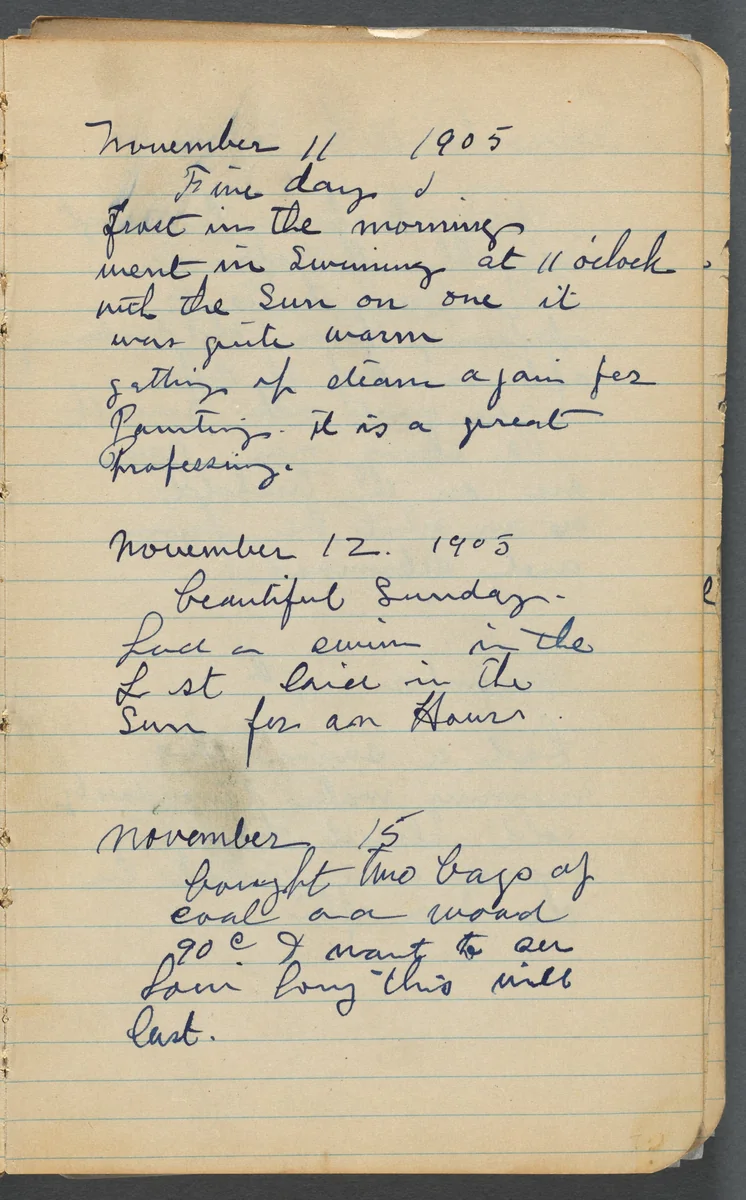 November 11 1905
Fine day
frost in the morning
went in Swiming at 11 o'clock
with the Sun on one it
was quite warm
getting up steam again for
Painting. it is a great
Professing.
November 12. 1905
beautiful Sunday.
Had a swim in the
L st laid in the
Sun for an Hour
November 15
bought two bags of
coal and wood
90 c I want to see
how long this will
last.